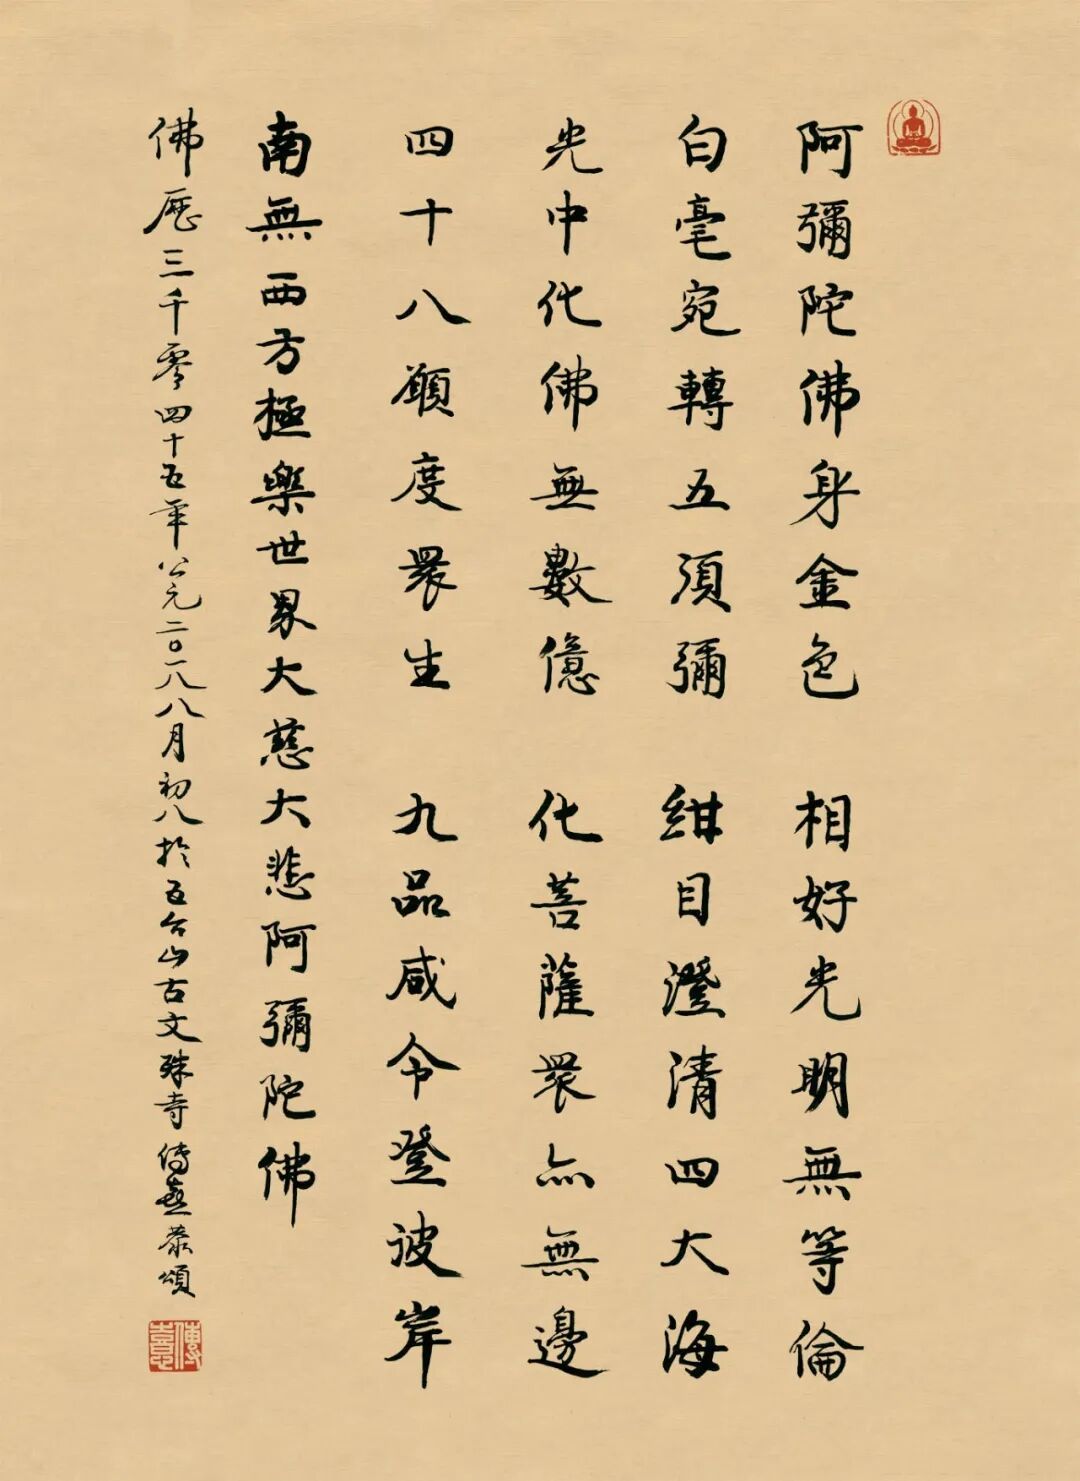 阿彌陀佛身金色　相好光明無等倫
白毫宛轉五須彌　紺目澄清四大海
光中化佛無數億　化菩薩眾亦無邊
四十八願度眾生　九品咸令登彼岸
南無西方極樂世界大慈大悲阿彌陀佛
佛歷三千零四十五年公元二〇一八八月初八於五台山古文殊寺傳喜恭頌
傳喜